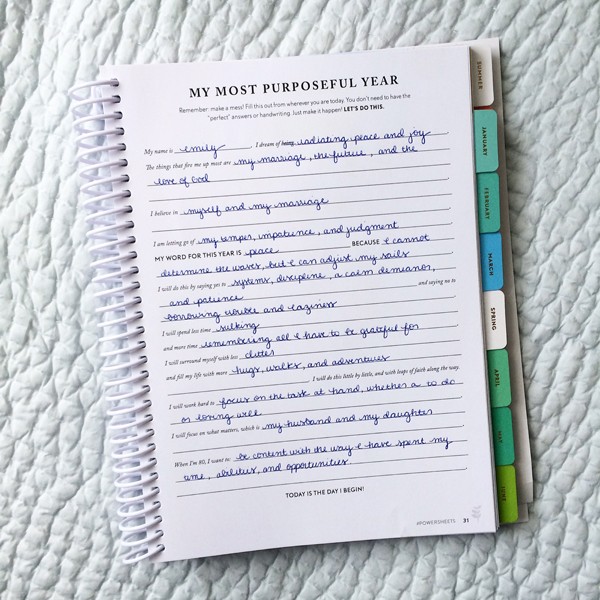 MY MOST PURPOSEFUL YEAR
Remember: make a mess! Fill this out from wherever you are today. You don't need to have the
"perfect" answers or handwriting. Just make it happen! LET'S DO THIS.
My name is emily. I dream of being radiating peace and joy
The things that fire me up most are my marriage, the future, and the
love of God
I believe in myself and my marriage
I am letting go of my temper, impatience, and judgment
MY WORD FOR THIS YEAR IS peace BECAUSE I cannot
determine the waves, but I can adjust my sails
I will do this by saying yes to systems, discipline, a calm demeanor,
and patience and saying no to
borrowing trouble and laziness
I will spend less time sulking
and more time remembering all I have to be grateful for
I will surround myself with less clutter
and fill my life with more hugs, walks, and adventures
I will do this little by little, and with leaps of faith along the way.
I will work hard to focus on the task at hand, whether a to do
or loving well
I will focus on what matters, which is my husband and my daughter
When I'm 80, I want to: be content with the way I have spent my
time, abilities, and opportunities.
TODAY IS THE DAY I BEGIN!
#POWERSHEETS 31
SUMMER
JANUARY
FEBRUARY
MARCH
SPRING
APRIL
MAY
JUNE